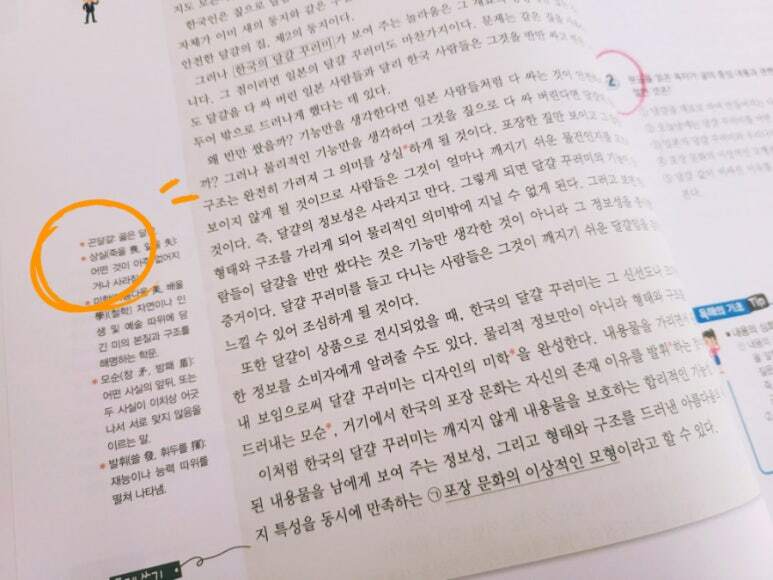 한국인은 짚으로
자체가 이미 새의 둥지와 같은
안전한 달걀의 집, 제2의 둥지이다.
그러나 한국의 달걀 꾸러미가 보여 주는 놀라움은 그
니다. 그 점이라면 일본의 달걀 꾸러미도 마찬가지이다. 문제는 같은 짚을
도 달걀을 다 싸 버린 일본 사람들과 달리 한국 사람들은 그것을 반만 싸고
두어 밖으로 드러나게 했다는 데 있다.
왜 반만 쌌을까? 기능만을 생각한다면 일본 사람들처럼 다 싸는 것이
까? 그러나 물리적인 기능만을 생각하여 그것을 짚으로 다 싸 버린다면
구조는 완전히 가려져 그 의미를 상실*하게 될 것이다. 포장한 짚만 보이고
보이지 않게 될 것이므로 사람들은 그것이 얼마나 깨지기 쉬운 물건인지를
것이다. 즉, 달걀의 정보성은 사라지고 만다. 그렇게 되면 달걀 꾸러미의
형태와 구조를 가리게 되어 물리적인 의미밖에 지닐 수 없게 된다. 그러고 보면
람들이 달걀을 반만 쌌다는 것은 기능만 생각한 것이 아니라 그 정보성을
증거이다. 달걀 꾸러미를 들고 다니는 사람들은 그것이 깨지기 쉬운 달걀임을
느낄 수 있어 조심하게 될 것이다.
또한 달걀이 상품으로 전시되었을 때, 한국의 달걀 꾸러미는 그 신선도나
한 정보를 소비자에게 알려줄 수도 있다. 물리적 정보만이 아니라 형태와 구조
내 보임으로써 달걀 꾸러미는 디자인의 미학*을 완성한다. 내용물을 가리면서
드러내는 모순*, 거기에서 한국의 포장 문화는 자신의 존재 이유를 발휘*하는
이처럼 한국의 달걀 꾸러미는 깨지지 않게 내용물을 보호하는 합리적인 기능
된 내용물을 남에게 보여 주는 정보성, 그리고 형태와 구조를 드러낸 아름다움의
지 특성을 동시에 만족하는 ㉠포장 문화의 이상적인 모형이라고 할 수 있다.
* 곤달걀: 곯은
* 상실(죽을 喪, 잃을 失):
어떤 것이 아주 없어지
거나
배울
學)(철학) 자연이나 인
생 및 예술 따위에 담
긴 미의 본질과 구조를
해명하는 학문.
* 모순(창 矛, 방패 盾):
어떤 사실의 앞뒤, 또는
두 사실이 이치상 어긋
나서 서로 맞지 않음을
이르는 말.
* 발휘(쏠 發, 휘두를 揮):
재능이나 능력 따위를
떨쳐 나타냄.
2
독해의 기초 Tip